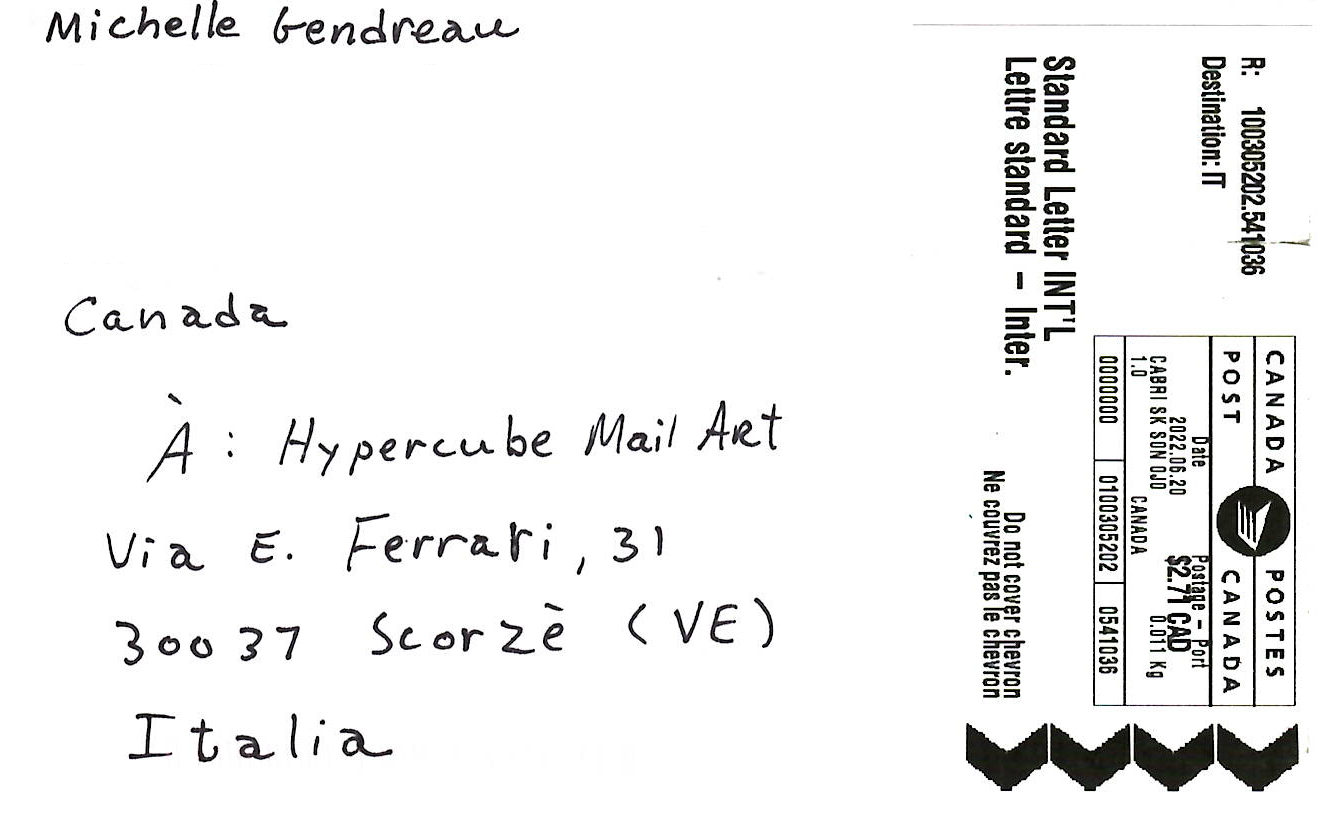 Michelle Gendreau
Canada
À: Hypercube Mail Art
Via E. Ferrari, 31
30037 Scorzè (VE)
Italia
R: 100305202.541036
Destination: IT
Standard Letter INT'L
Lettre standard – Inter.
CANADA POSTES
POST CANADA
Date
2022.06.20
Postage – Port
$2.71 CAD
CABRI SK S0N 0J0
0.011 Kg
1.0
CANADA
0000000 0100305202 0541036
Do not cover chevron
Ne couvrez pas le chevron